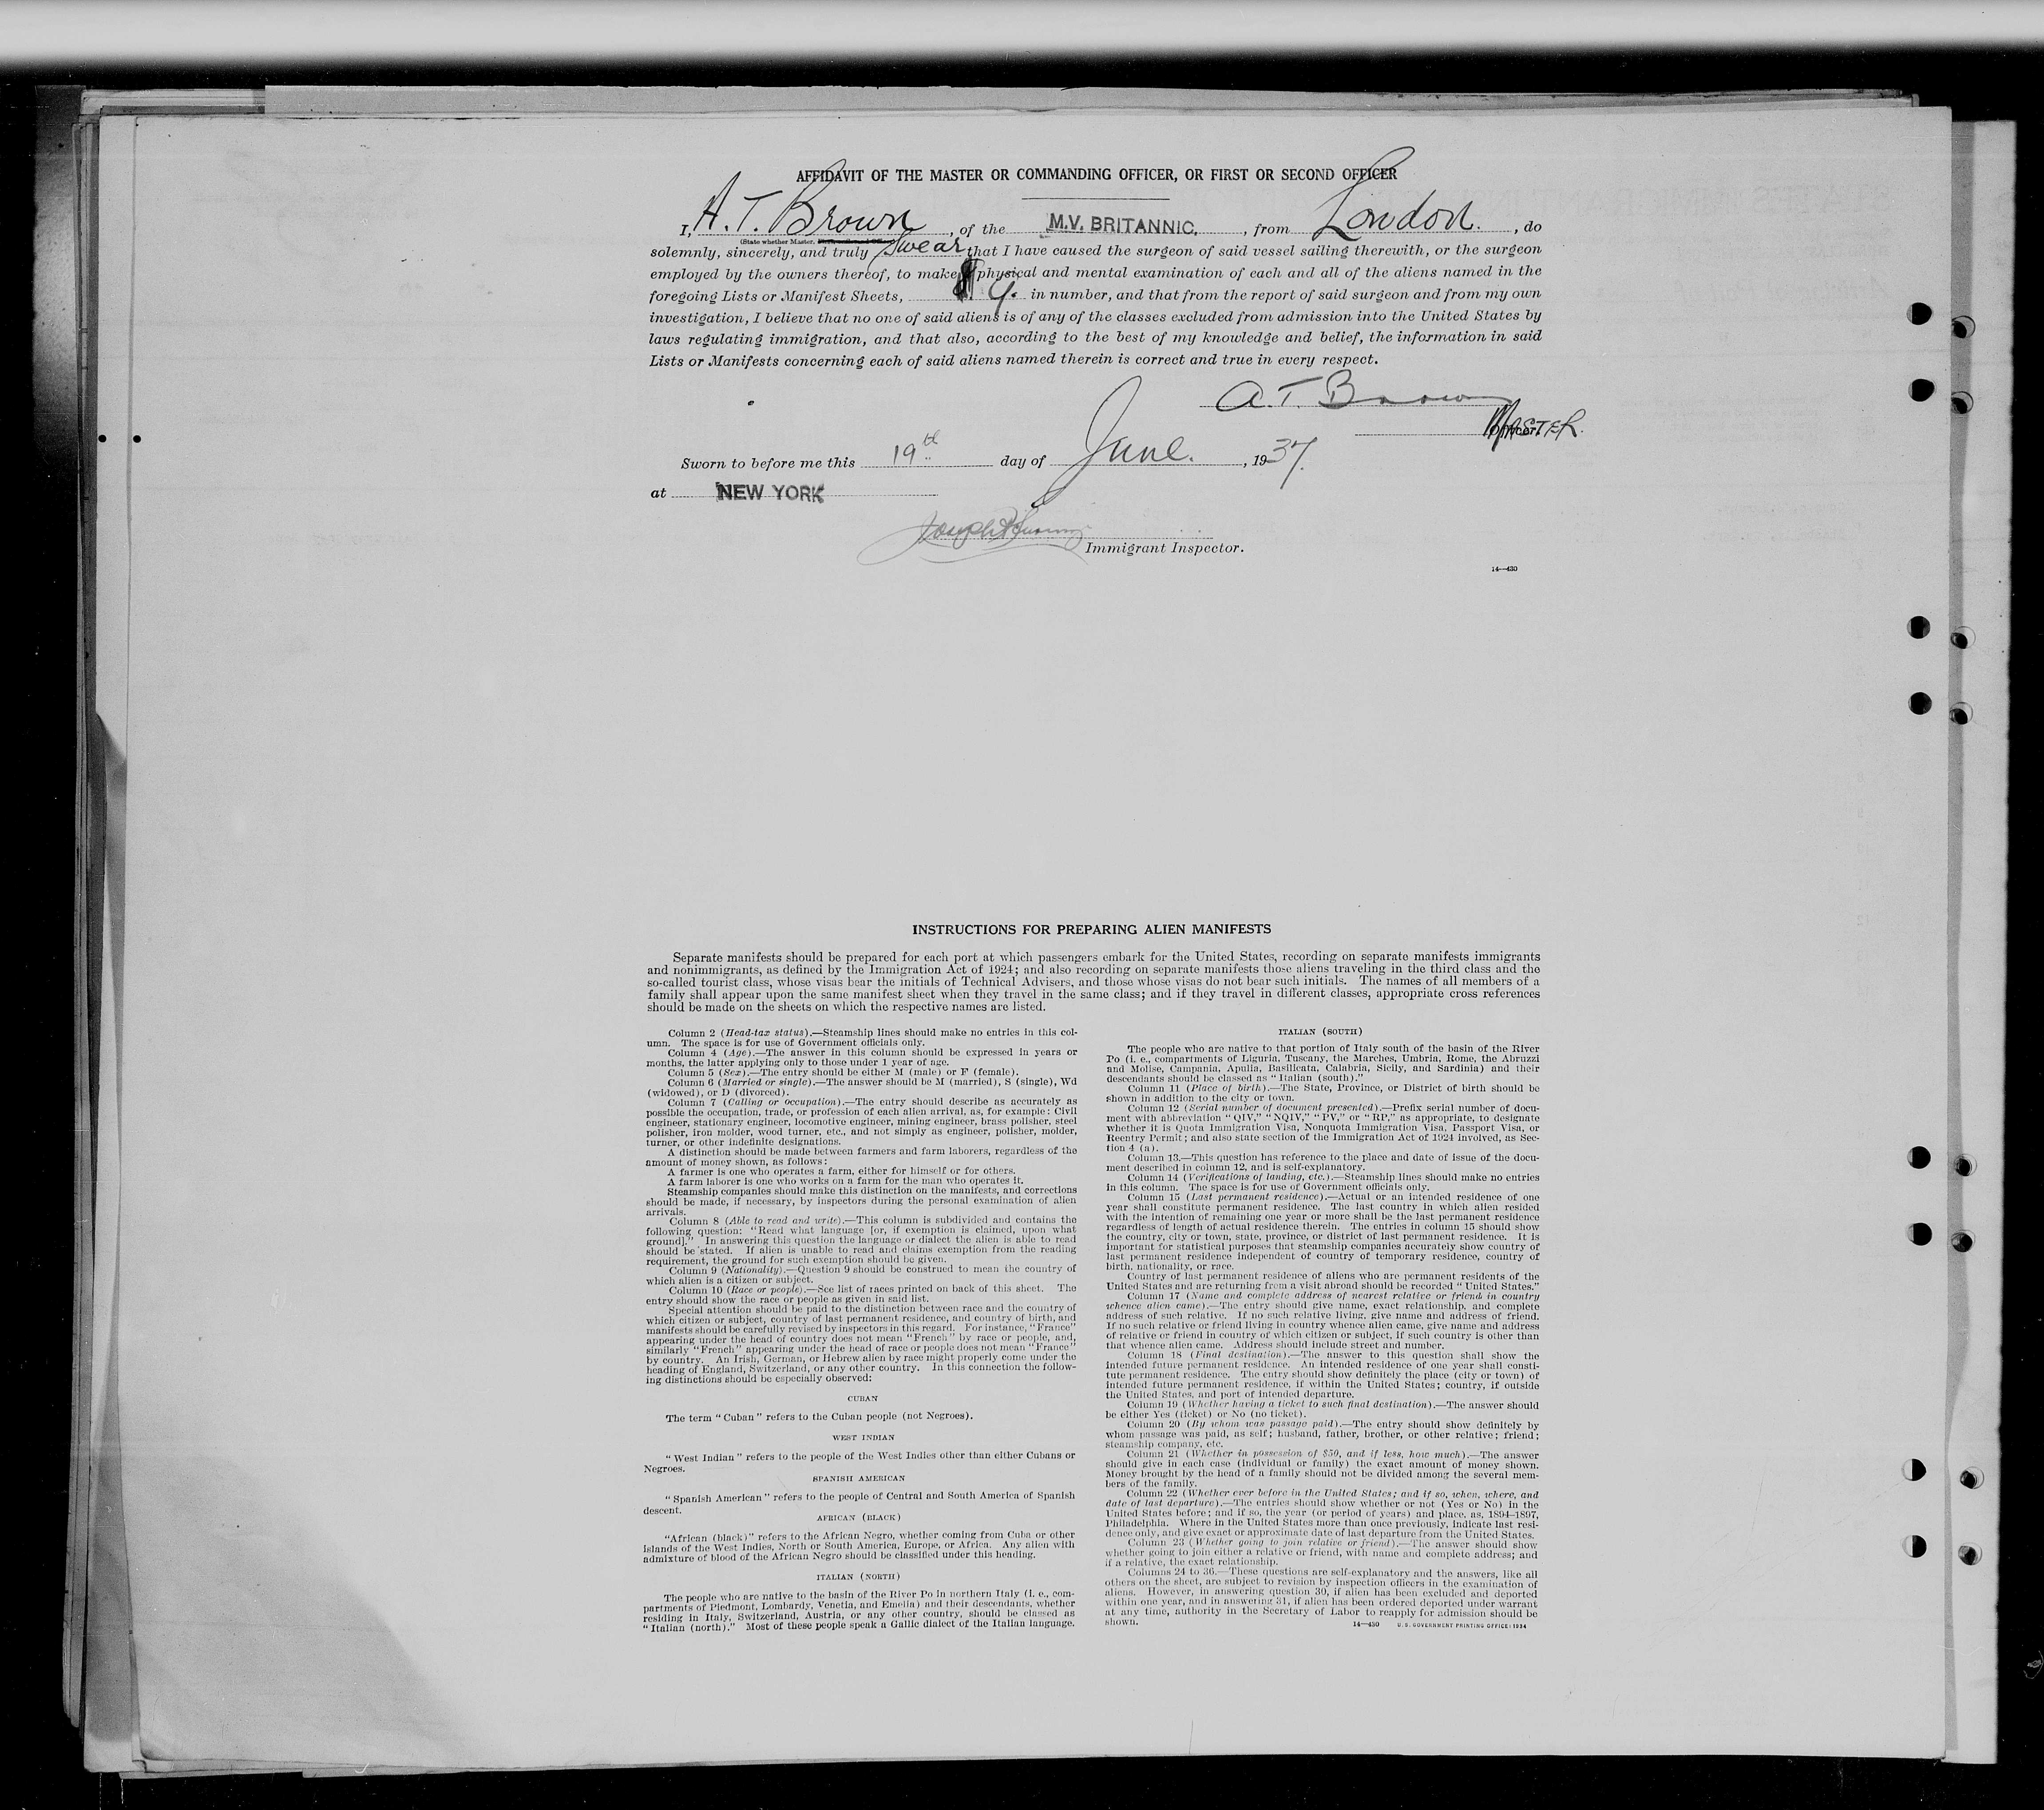 AFFIDAVIT OF THE MASTER OR COMMANDING OFFICER, OR FIRST OR SECOND OFFICER
I, A. T. Brown, of the M.V. BRITANNIC, from London., do
(State whether Master, First or Second Officer)
solemnly, sincerely, and truly Swear that I have caused the surgeon of said vessel sailing therewith, or the surgeon
employed by the owners thereof, to make physical and mental examination of each and all of the aliens named in the
foregoing Lists or Manifest Sheets, in number, and that from the report of said surgeon and from my own
investigation, I believe that no one of said aliens is of any of the classes excluded from admission into the United States by
laws regulating immigration, and that also, according to the best of my knowledge and belief, the information in said
Lists or Manifests concerning each of said aliens named therein is correct and true in every respect.
A. T. Brown
MASTER.
Sworn to before me this 19th day of June., 1937.
at NEW YORK
Immigrant Inspector.
14—430
INSTRUCTIONS FOR PREPARING ALIEN MANIFESTS
Separate manifests should be prepared for each port at which passengers embark for the United States, recording on separate manifests immigrants
and nonimmigrants, as defined by the Immigration Act of 1924; and also recording on separate manifests those aliens traveling in the third class and the
so-called tourist class, whose visas bear the initials of Technical Advisers, and those whose visas do not bear such initials. The names of all members of a
family shall appear upon the same manifest sheet when they travel in the same class; and if they travel in different classes, appropriate cross references
should be made on the sheets on which the respective names are listed.
Column 2 (Head-tax status).—Steamship lines should make no entries in this col-
umn. The space is for use of Government officials only.
Column 4 (Age).—The answer in this column should be expressed in years or
months, the latter applying only to those under 1 year of age.
Column 5 (Sex).—The entry should be either M (male) or F (female).
Column 6 (Married or single).—The answer should be M (married), S (single), Wd
(widowed), or D (divorced).
Column 7 (Calling or occupation).—The entry should describe as accurately as
possible the occupation, trade, or profession of each alien arrival, as, for example: Civil
engineer, stationary engineer, locomotive engineer, mining engineer, brass polisher, steel
polisher, iron molder, wood turner, etc., and not simply as engineer, polisher, molder,
turner, or other indefinite designations.
A distinction should be made between farmers and farm laborers, regardless of the
amount of money shown, as follows:
A farmer is one who operates a farm, either for himself or for others.
A farm laborer is one who works on a farm for the man who operates it.
Steamship companies should make this distinction on the manifests, and corrections
should be made, if necessary, by inspectors during the personal examination of alien
arrivals.
Column 8 (Able to read and write).—This column is subdivided and contains the
following question: "Read what language [or, if exemption is claimed, upon what
ground]." In answering this question the language or dialect the alien is able to read
should be stated. If alien is unable to read and claims exemption from the reading
requirement, the ground for such exemption should be given.
Column 9 (Nationality).—Question 9 should be construed to mean the country of
which alien is a citizen or subject.
Column 10 (Race or people).—See list of races printed on back of this sheet. The
entry should show the race or people as given in said list.
Special attention should be paid to the distinction between race and the country of
which citizen or subject, country of last permanent residence, and country of birth, and
manifests should be carefully revised by inspectors in this regard. For instance, "France"
appearing under the head of country does not mean "French" by race or people, and,
similarly "French" appearing under the head of race or people does not mean "France"
by country. An Irish, German, or Hebrew alien by race might properly come under the
heading of England, Switzerland, or any other country. In this connection the follow-
ing distinctions should be especially observed:
CUBAN
The term "Cuban" refers to the Cuban people (not Negroes).
WEST INDIAN
"West Indian" refers to the people of the West Indies other than either Cubans or
Negroes.
SPANISH AMERICAN
"Spanish American" refers to the people of Central and South America of Spanish
descent.
AFRICAN (BLACK)
"African (black)" refers to the African Negro, whether coming from Cuba or other
islands of the West Indies, North or South America, Europe, or Africa. Any alien with
admixture of blood of the African Negro should be classified under this heading.
ITALIAN (NORTH)
The people who are native to the basin of the River Po in northern Italy (i. e., com-
partments of Piedmont, Lombardy, Venetia, and Emelia) and their descendants, whether
residing in Italy, Switzerland, Austria, or any other country, should be classed as
"Italian (north)." Most of these people speak a Gallic dialect of the Italian language.
ITALIAN (SOUTH)
The people who are native to that portion of Italy south of the basin of the River
Po (i. e., compartments of Liguria, Tuscany, the Marches, Umbria, Rome, the Abruzzi
and Molise, Campania, Apulia, Basilicata, Calabria, Sicily, and Sardinia) and their
descendants should be classed as "Italian (south)."
Column 11 (Place of birth).—The State, Province, or District of birth should be
shown in addition to the city or town.
Column 12 (Serial number of document presented).—Prefix serial number of docu-
ment with abbreviation "QIV," "NQIV," "PV," or "RP," as appropriate, to designate
whether it is Quota Immigration Visa, Nonquota Immigration Visa, Passport Visa, or
Reentry Permit; and also state section of the Immigration Act of 1924 involved, as Sec-
tion 4 (a).
Column 13.—This question has reference to the place and date of issue of the docu-
ment described in column 12, and is self-explanatory.
Column 14 (Verifications of landing, etc.).—Steamship lines should make no entries
in this column. The space is for use of Government officials only.
Column 15 (Last permanent residence).—Actual or an intended residence of one
year shall constitute permanent residence. The last country in which alien resided
with the intention of remaining one year or more shall be the last permanent residence
regardless of length of actual residence therein. The entries in column 15 should show
the country, city or town, state, province, or district of last permanent residence. It is
important for statistical purposes that steamship companies accurately show country of
last permanent residence independent of country of temporary residence, country of
birth, nationality, or race.
Country of last permanent residence of aliens who are permanent residents of the
United States and are returning from a visit abroad should be recorded "United States."
Column 17 (Name and complete address of nearest relative or friend in country
whence alien came).—The entry should give name, exact relationship, and complete
address of such relative. If no such relative living, give name and address of friend.
If no such relative or friend living in country whence alien came, give name and address
of relative or friend in country of which citizen or subject, if such country is other than
that whence alien came. Address should include street and number.
Column 18 (Final destination).—The answer to this question shall show the
intended future permanent residence. An intended residence of one year shall consti-
tute permanent residence. The entry should show definitely the place (city or town) of
intended future permanent residence, if within the United States; country, if outside
the United States, and port of intended departure.
Column 19 (Whether having a ticket to such final destination).—The answer should
be either Yes (ticket) or No (no ticket).
Column 20 (By whom was passage paid).—The entry should show definitely by
whom passage was paid, as self; husband, father, brother, or other relative; friend;
steamship company, etc.
Column 21 (Whether in possession of $50, and if less, how much).—The answer
should give in each case (individual or family) the exact amount of money shown.
Money brought by the head of a family should not be divided among the several mem-
bers of the family.
Column 22 (Whether ever before in the United States; and if so, when, where, and
date of last departure).—The entries should show whether or not (Yes or No) in the
United States before; and if so, the year (or period of years) and place, as, 1894–1897,
Philadelphia. Where in the United States more than once previously, indicate last resi-
dence only, and give exact or approximate date of last departure from the United States.
Column 23 (Whether going to join relative or friend).—The answer should show
whether going to join either a relative or friend, with name and complete address; and
if a relative, the exact relationship.
Columns 24 to 36.—These questions are self-explanatory and the answers, like all
others on the sheet, are subject to revision by inspection officers in the examination of
aliens. However, in answering question 30, if alien has been excluded and deported
within one year, and in answering 31, if alien has been ordered deported under warrant
at any time, authority in the Secretary of Labor to reapply for admission should be
shown.
14—430 U. S. GOVERNMENT PRINTING OFFICE: 1934